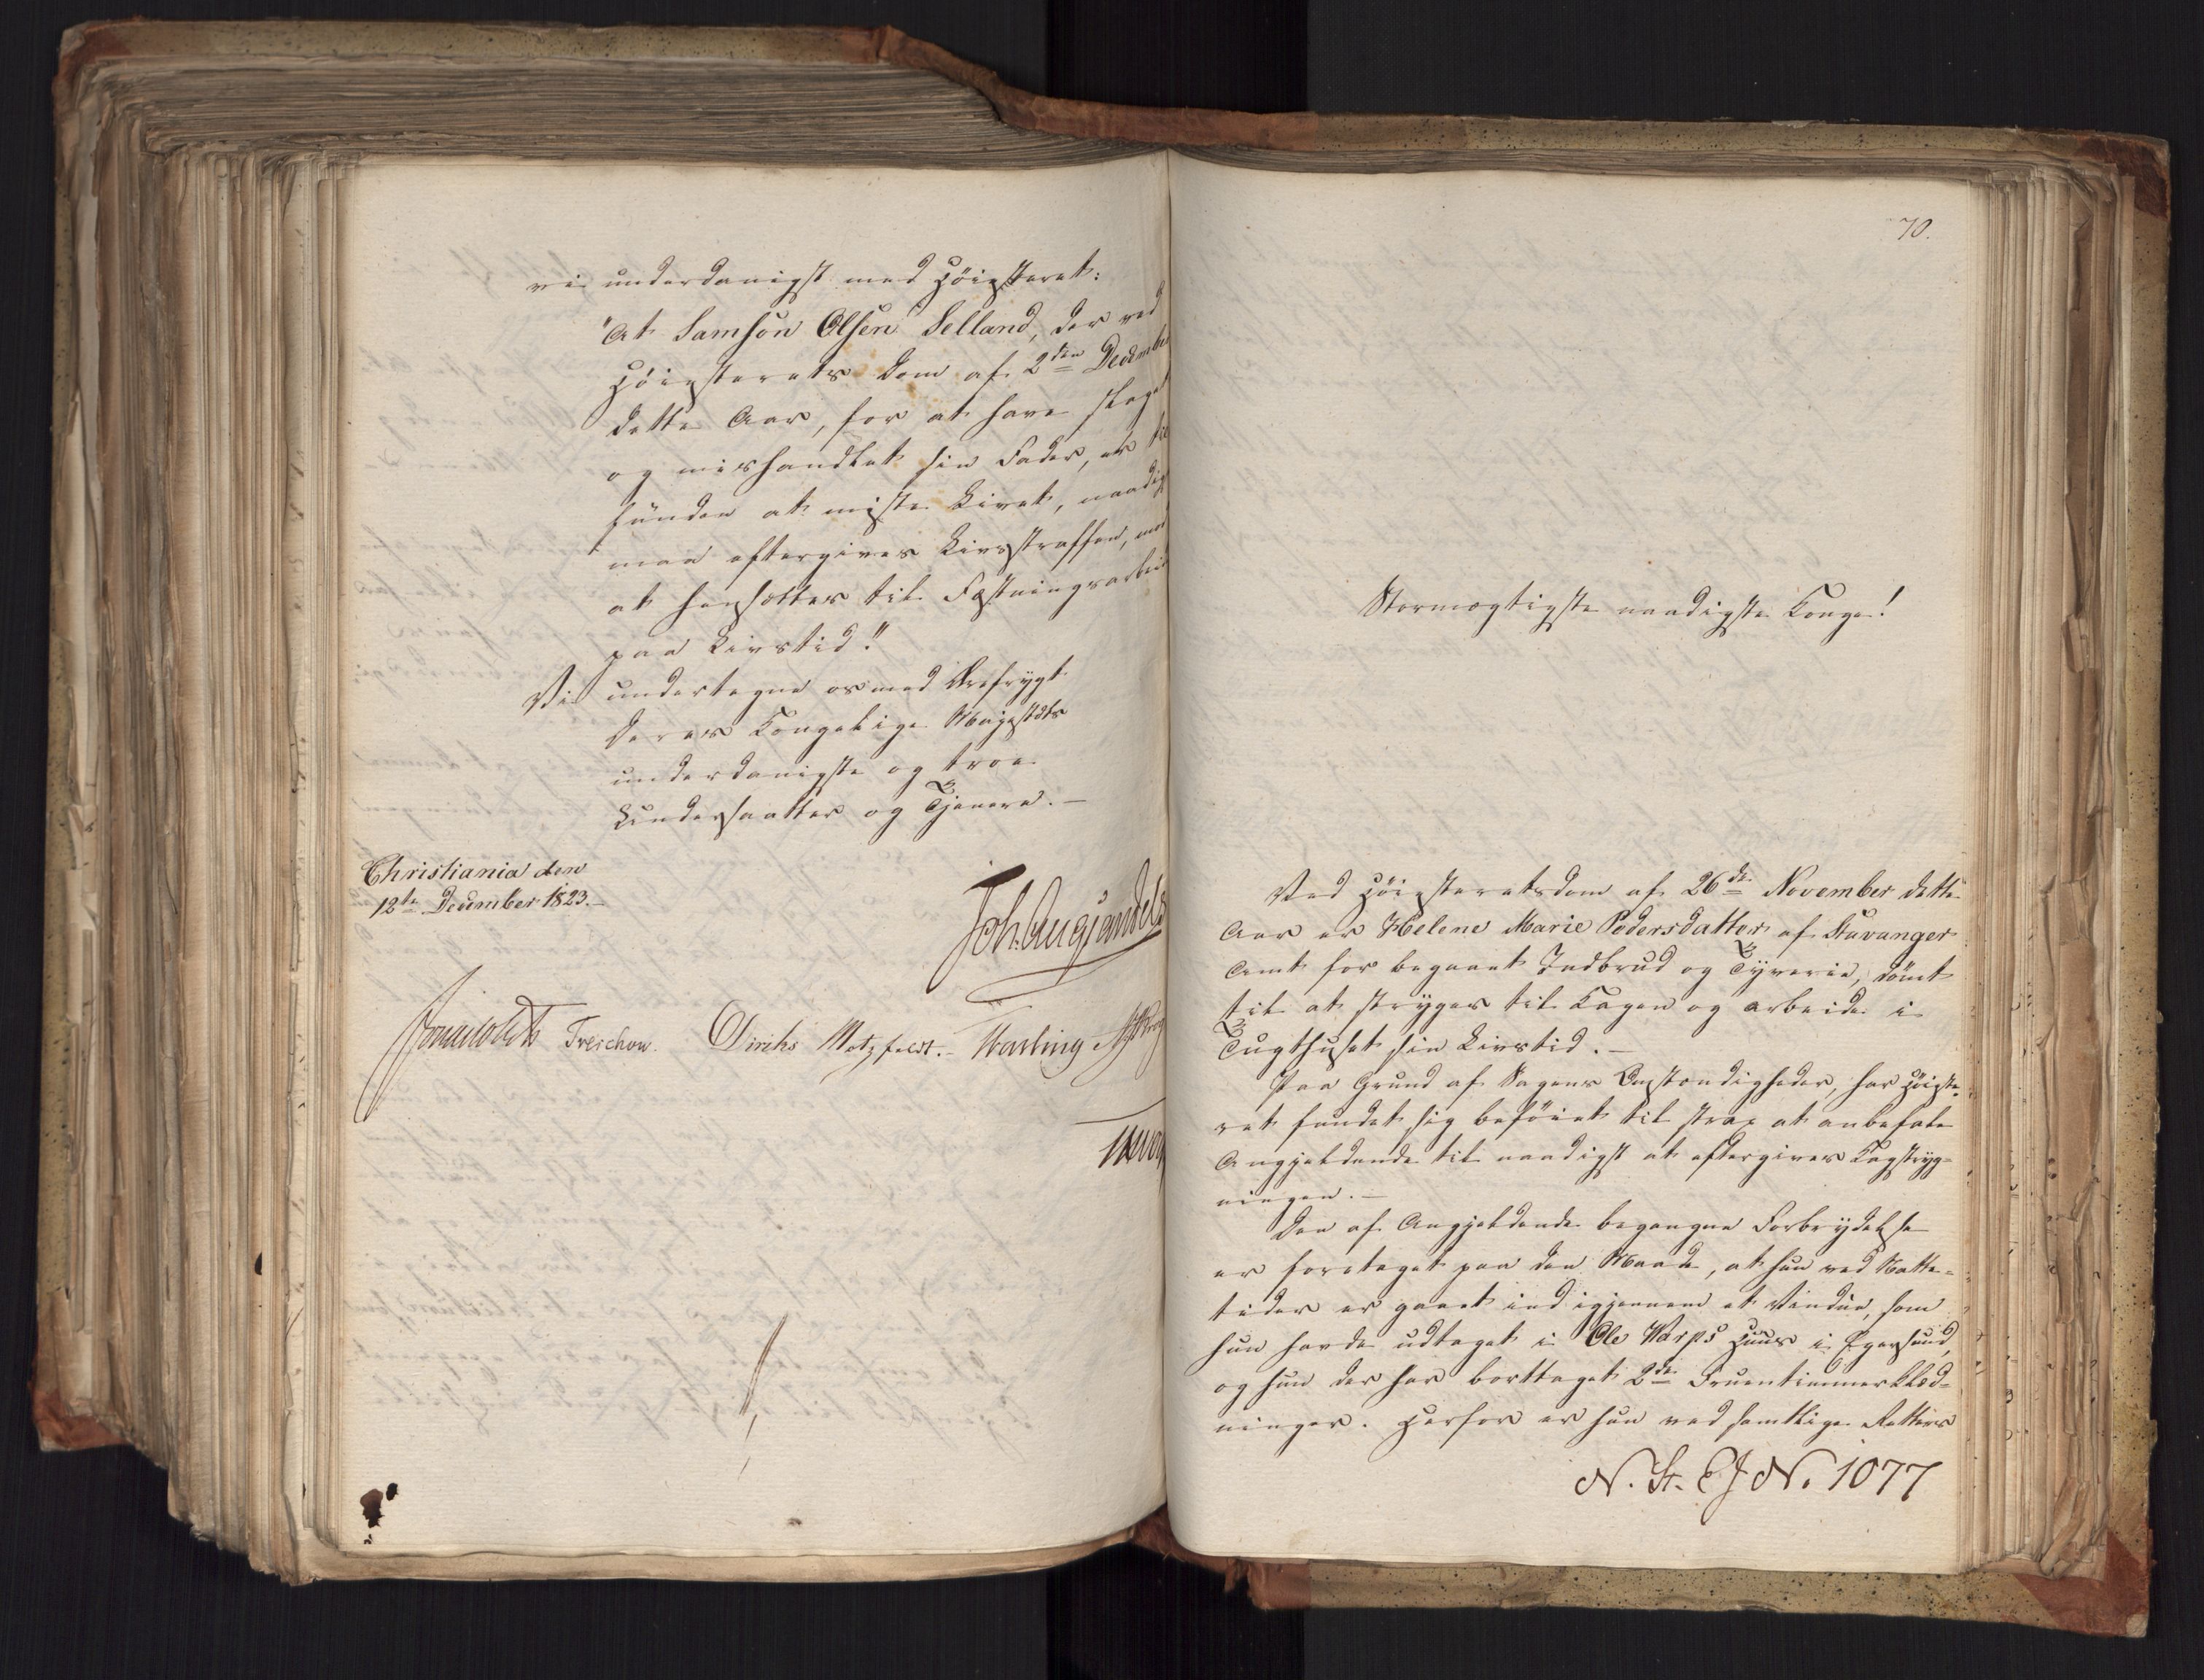 vi underdanigst med Höiesteret:
"At Samson Olsen Selland, der ved
Höiesterets Dom af 2den December
dette Aar, for at have slaget
og mishandlet sin Fader, er til
funden at miste Livet, naadigst
maa eftergives Livsstraffen, mod
at hensættes til Fæstningsarbeide
paa Livstid."
Vi undertegne os med Ærefrygt
Deres Kongelige Majestæts
underdanigste og troe
Undersaatter og Tjenere. —
Christiania den
12te December 1823. —
Joh. Aug. Sandels
Sommerhielm Treschow. Diriks Motzfeldt. – Fasting
70.
Stormægtigste naadigste Konge!
Ved Höiesteretsdom af 26de November dette
Aar er Helene Marie Pedersdatter af Stavanger
Amt for begaaet Indbrud og Tyverie, dömt
til at stryges til Kagen og arbeide i
Tugthuset sin Livstid. —
Paa Grund af Sagens Omstændigheder, har Höieste-
ret fundet sig beföiet til strax at anbefale
Angjeldende til naadigst at eftergives Kagstryg-
ningen. —
Den af Angjeldende begangne Forbrydelse
er foretaget paa den Maade, at hun ved Natte-
tider er gaaet ind igjennem et Vindue, som
hun havde udtaget i Ole Varps Huus i Egersund,
og hun der har borttaget 2de Fruentimmerklæd-
ninger. Herfor er hun ved samtlige Retters
N. St. E J N. 1077